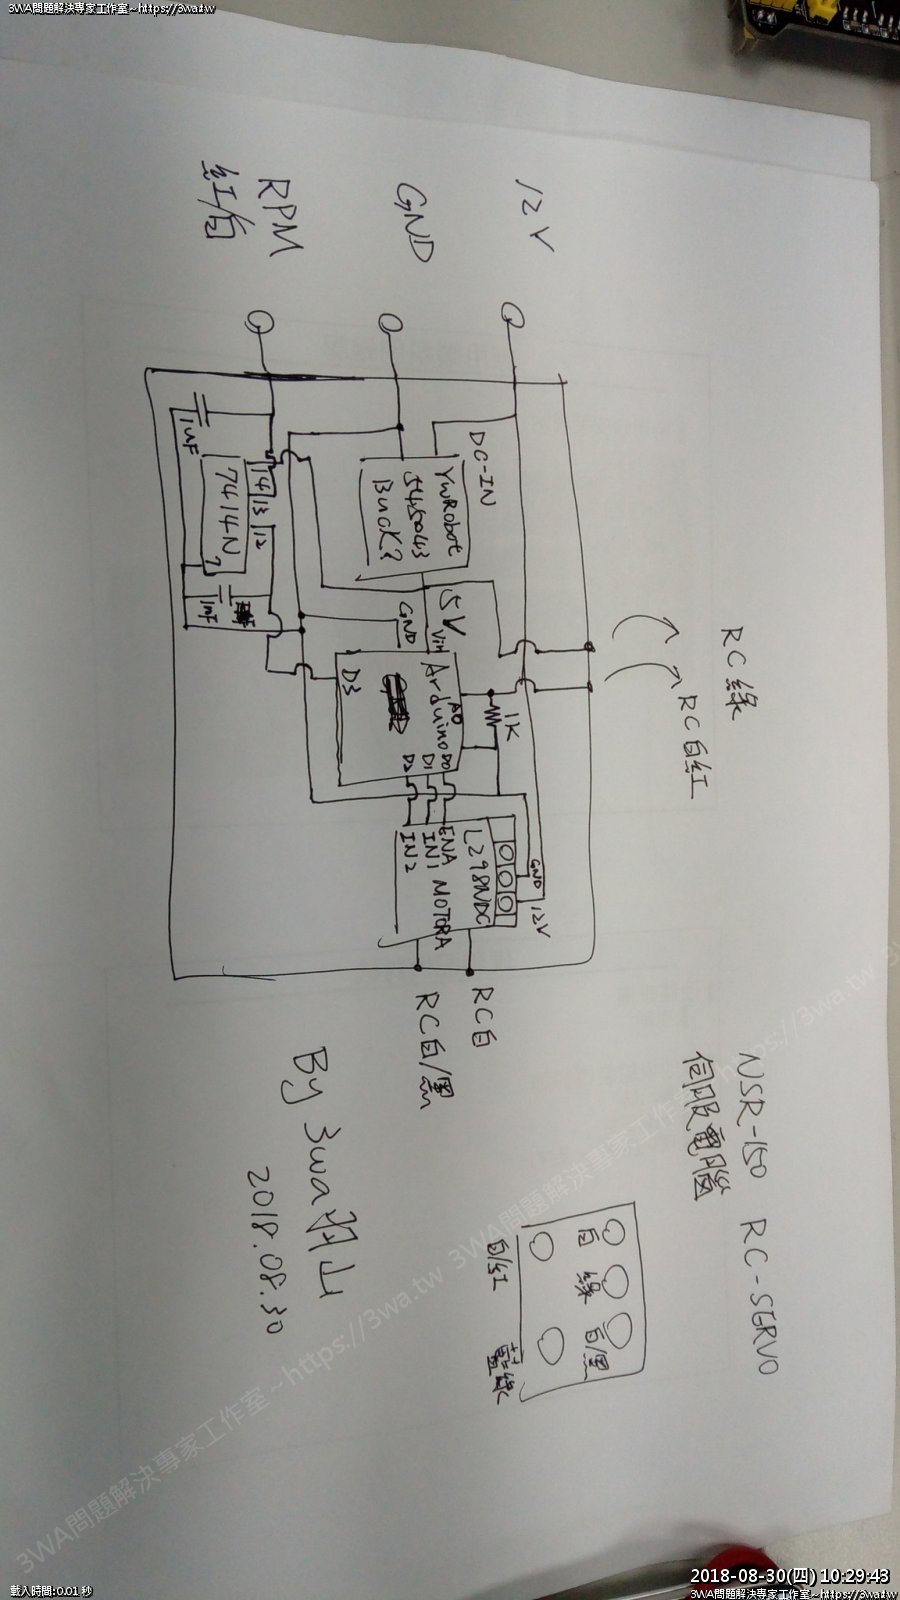 3WA問題解決專家工作室~https://3wa.tw
NSR-150 RC-SERVO
伺服電腦
RC綠
RC白紅
12V
GND
RPM
紅/白
DC-IN
YwRobot
545043
Buck?
5V
Vin
GND
Arduino
A0
D0
D1
D2
D3
1K
L298NDC
MOTORA
ENA
IN1
IN2
GND
12V
RC白
RC白/黑
14
13
12
7414N
7
1uF
1uF
白
綠
白/黑
白/紅
藍綠
By 3wa羽山
2018.08.30
3WA問題解決專家工作室~https://3wa.tw
3WA問題解決專家工作室~https://3wa.tw
載入時間:0.01 秒
2018-08-30(四) 10:29:43
3WA問題解決專家工作室~https://3wa.tw